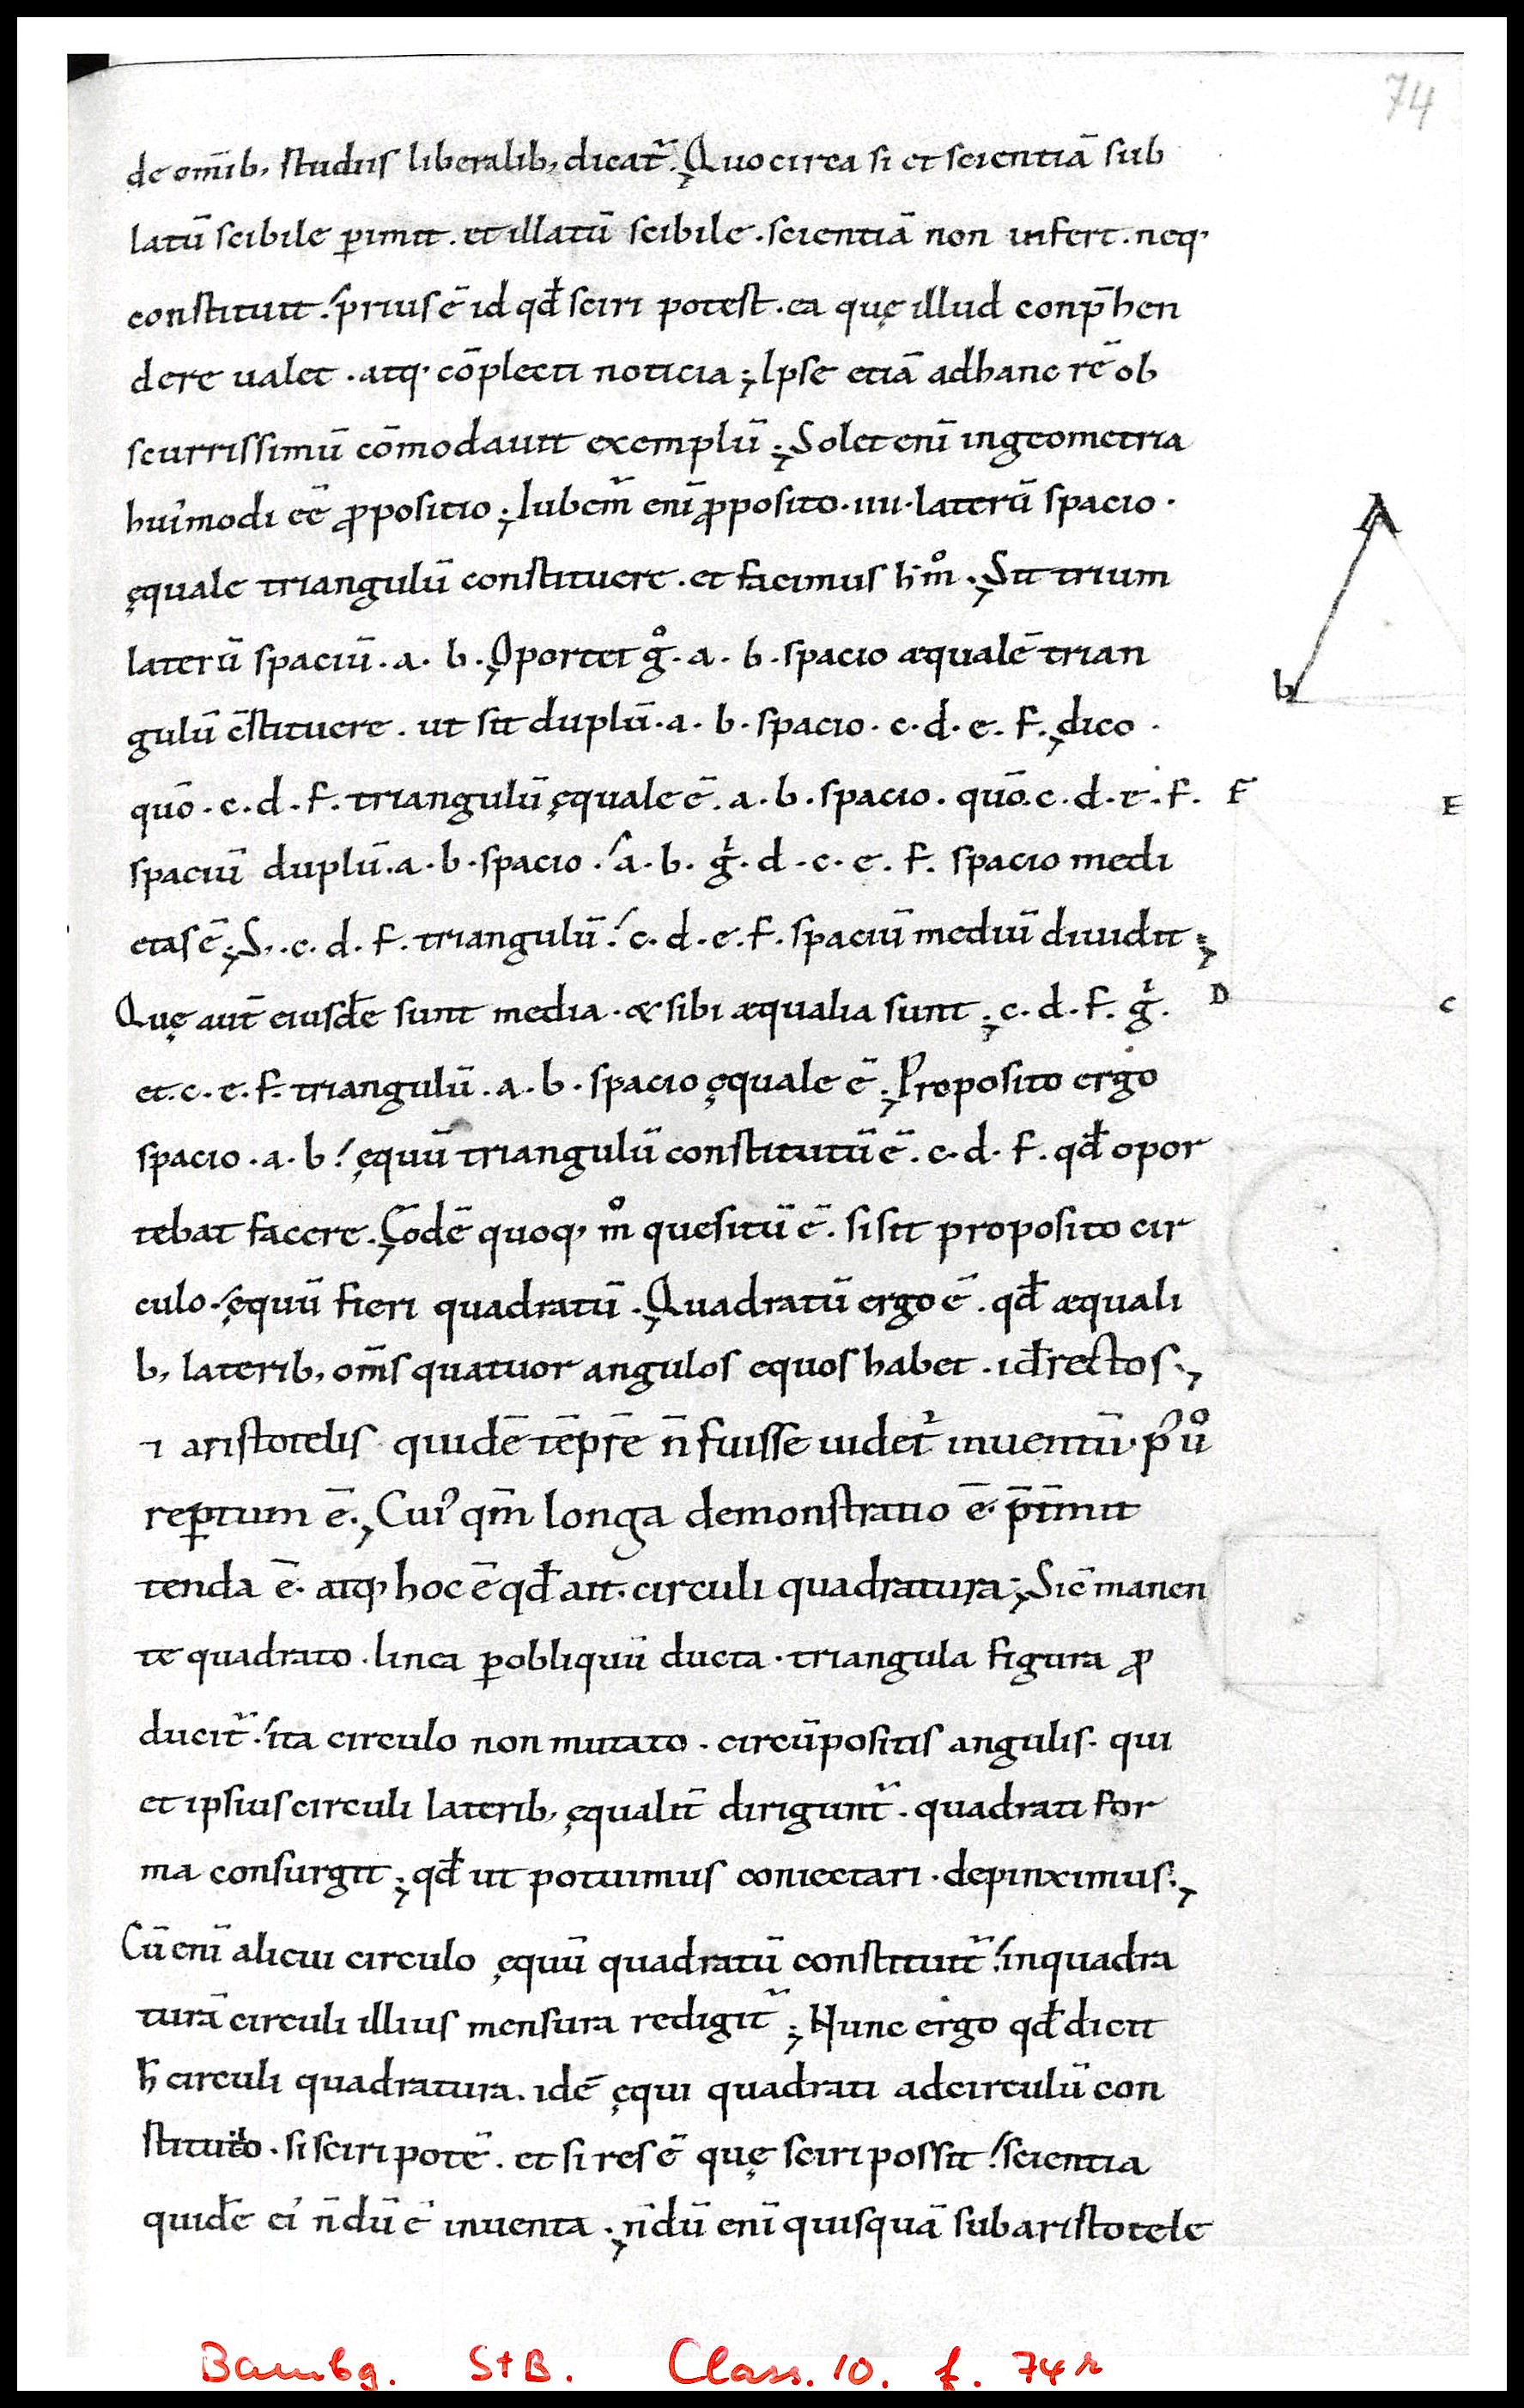 74
de om̄ib, studiis liberalib, dicat᷑. Quocirca si et scientiā sub
latū scibile ꝑimit. et illatū scibile. scientiā non infert. neq·
constituit. prius ē id qđ sciri potest. ea quę illud conp̄hen
dere ualet. atq· cōplecti noticia; Ipse etiā adhanc rē ob
scurrissimū cōmodauit exemplū; Solet enī ingeometria
hui᾽modi eē ꝓpositio; Iubem᷑ enī ꝓposito. iiii. laterū spacio.
ęquale triangulū constituere. et facimus h· m̊; Sit trium
laterū spaciū. a. b. Oportet g̊. a. b. spacio æqualē trian
gulū c̄stituere. ut sit duplū. a. b. spacio. c. d. e. f. dico.
quō. c. d. f. triangulū ęquale ē. a. b. spacio. quō. c. d. e. f.
spaciū duplū. a. b. spacio. a. b. g᷑. d. c. e. f. spacio medi
etas ē; S,. c. d. f. triangulū. c. d. e. f. spaciū mediū diuidit;
Quę aut̄ eiusdē sunt media. & sibi æqualia sunt; c. d. f. g᷑.
et. c. e. f. triangulū. a. b. spacio ęquale ē; Proposito ergo
spacio. a. b. ęquū triangulū constitutū ē. c. d. f. qđ opor
tebat facere. Eodē quoq, m̊ quesitū ē. si sit proposito cir
culo. ęquū fieri quadratū. Quadratū ergo ē. qđ æquali
b, laterib, om̄s quatuor angulos equos habet. id̄ rectos;
⁊ aristotelis quidē tēpr̄e n̄ fuisse uidet᷑ inuentū. p᾽ ů
reꝑtum ē; Cui᾽ qm̄ longa demonstratio ē. p̄t̄mit
tenda ē. atq, hoc ē qđ ait. circuli quadratura; Sic̄ manen
te quadrato. linea ꝑobliquū ducta. triangula figura ꝓ
ducit᷑. ita circulo non mutato. circūpositis angulis. qui
et ipsius circuli laterib, ęqualit̄ dirigunt᷑. quadrati for
ma consurgit; qđ ut potuimus coniectari. depinximus;
Cū enī alicui circulo ęquū quadratū constituit᷑. inquadra
turā circuli illius mensura redigit᷑; Nunc ergo qđ dicit
h̄ circuli quadratura. idē ęqui quadrati adcirculū con
stitutio. si sciri potē. et si res ē quę sciri possit. scientia
quidē ei᾽ n̄dū ē inuenta; n̄dū enī quisquā subaristotele
A
b
F E
D C
Bambg. StB. Class. 10. f. 74r